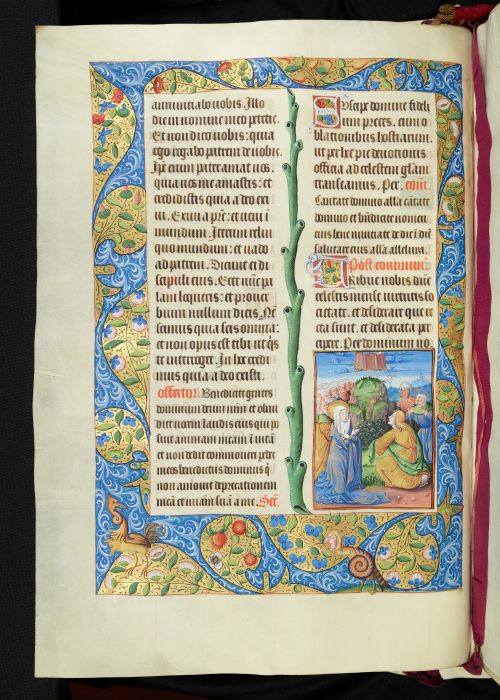 annuntiabo vobis. Illo
die in nomine meo petetis.
Et non dico vobis: quia
ego rogabo patrem de vobis.
Ip̄e enim pater amat vos:
quia vos me amastis: et
credidistis quia a deo exi
vi. Exivi a p̄re: et veni ī
mundum. Iterum relin
quo mundum: et vado
ad patrem. Dicunt ei di
scipuli eius. Ecce nūc pa
lam loqueris: et prover
bium nullum dicis. Nūc
scimus quia scis omnia:
et non opus est tibi ut q̄s
te interroget. In hoc credi
mus quia a deo existi.
offertor̄. Benedicite gentes
dominum deum nrm̄ et obau
dite vocem laudis eius qui po
suit animam meam ī vitā
et non dedit commoveri pedes
meos benedictus dominus q̄
non amovit deprecationem
meā et miam̄ suā a me. Sec̄.
Suscipe domine fideli
um preces. cum o
blationibus hostiarum.
ut per hec pie devotionis
officia ad celestem gl̄am
transeamus. Per. com̄.
Cantate domino all̄a cātate
domino et bn̄dicite nomen
eius bene nuntiate de die ī diē
salutare eius all̄a alleluya.
Post communiō
Tribue nobis dn̄e
celestis mense virtutis so
cietate. et desiderare que re
cta sunt. et desiderata per
cipere. Per dominum no.